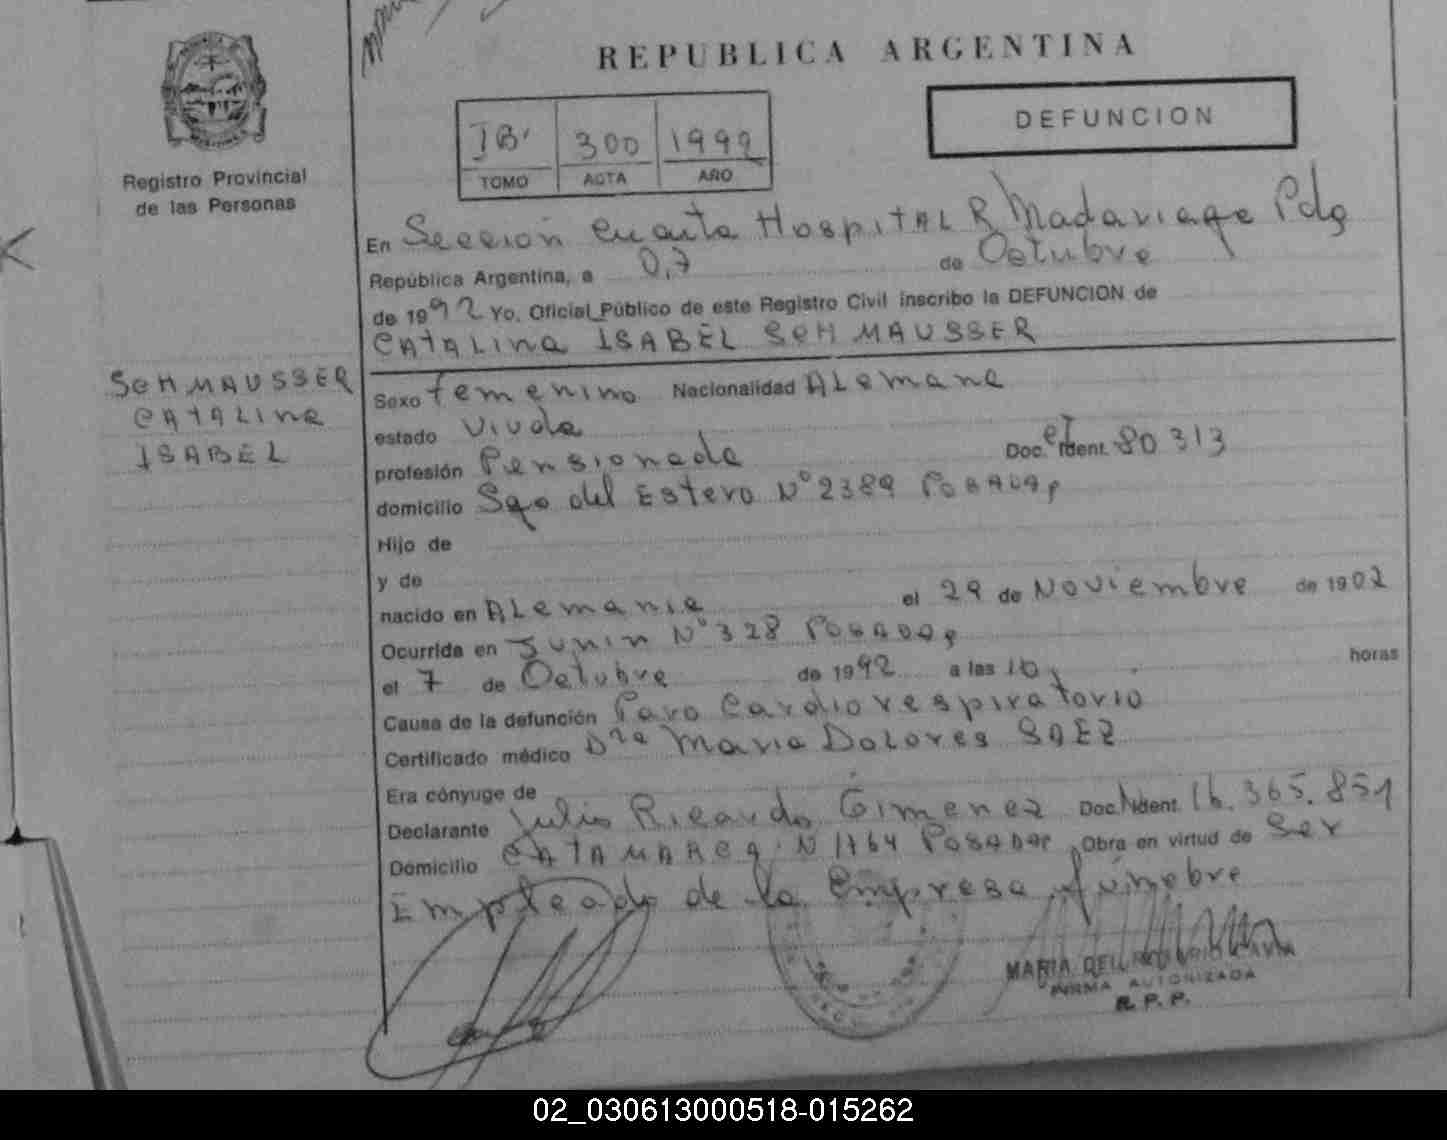 REPUBLICA ARGENTINA
DEFUNCION
IB' 300 1992
TOMO ACTA AÑO
Registro Provincial
de las Personas
En Sección Cuarta Hospital R Madariaga Pdas
República Argentina, a 07 de Octubre
de 1992 Yo, Oficial Público de este Registro Civil inscribo la DEFUNCION de
CATALINA ISABEL SCHMAUSSER
SCHMAUSSER
CATALINA
ISABEL
Sexo femenino Nacionalidad Alemana
estado Viuda
profesión Pensionada Doc. CI Ident. 80313
domicilio Sgo del Estero N° 2389 Posadas
Hijo de
y de
nacido en Alemania el 29 de Noviembre de 1902
Ocurrida en Junin N° 328 Posadas
el 7 de Octubre de 1992 a las 10, horas
Causa de la defunción Paro Cardiorespiratorio
Certificado médico Dra Maria Dolores SAEZ
Era cónyuge de
Declarante Julio Ricardo Gimenez Doc. Ident. 16.365.851
Domicilio CATAMARCA N 1764 Posadas Obra en virtud de Ser
Empleado de la Empresa fúnebre
MARIA DEL
FIRMA AUTORIZADA
R. P. P.
02_030613000518-015262